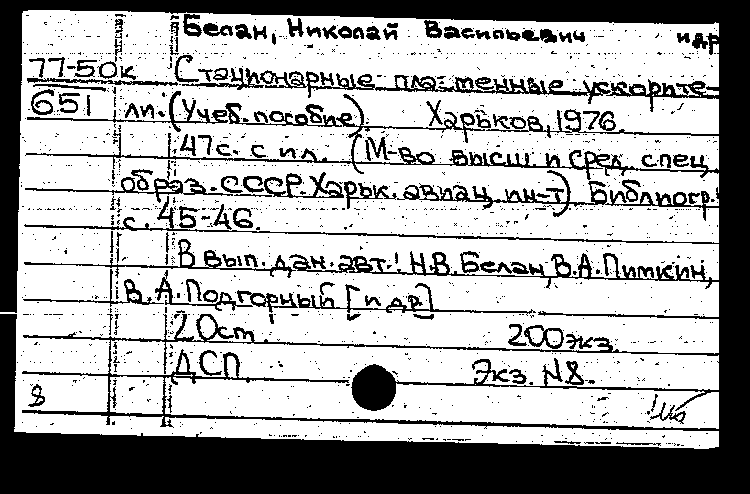 Белан, Николай Васильевич и др
77-50к Стационарные плазменные ускорите-
651 ли. (Учеб. пособие). Харьков, 1976.
47с. с ил. (М-во высш. и сред. спец.
образ. СССР. Харьк. авиац. ин-т) Библиогр.:
с. 45-46.
В вып. дан. авт.: Н.В. Белан, В.А. Пимкин,
В.А. Подгорный [и др]
20ст. 200экз.
ДСП. Экз. N8.
8